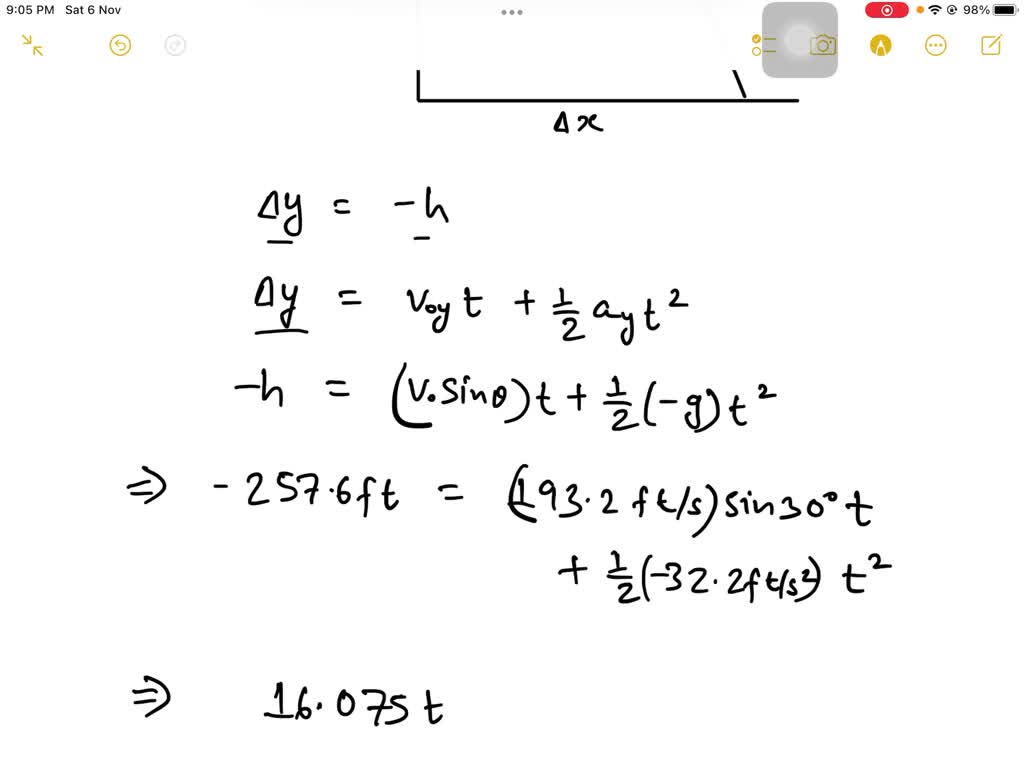 9:05 PM Sat 6 Nov 98%
Δx
Δy = -h
Δy = v₀y t + 1/2 ay t²
-h = (v₀ sinθ)t + 1/2 (-g) t²
⇒ -257.6ft = (193.2 ft/s) sin30° t
+ 1/2 (-32.2ft/s²) t²
⇒ 16.075 t